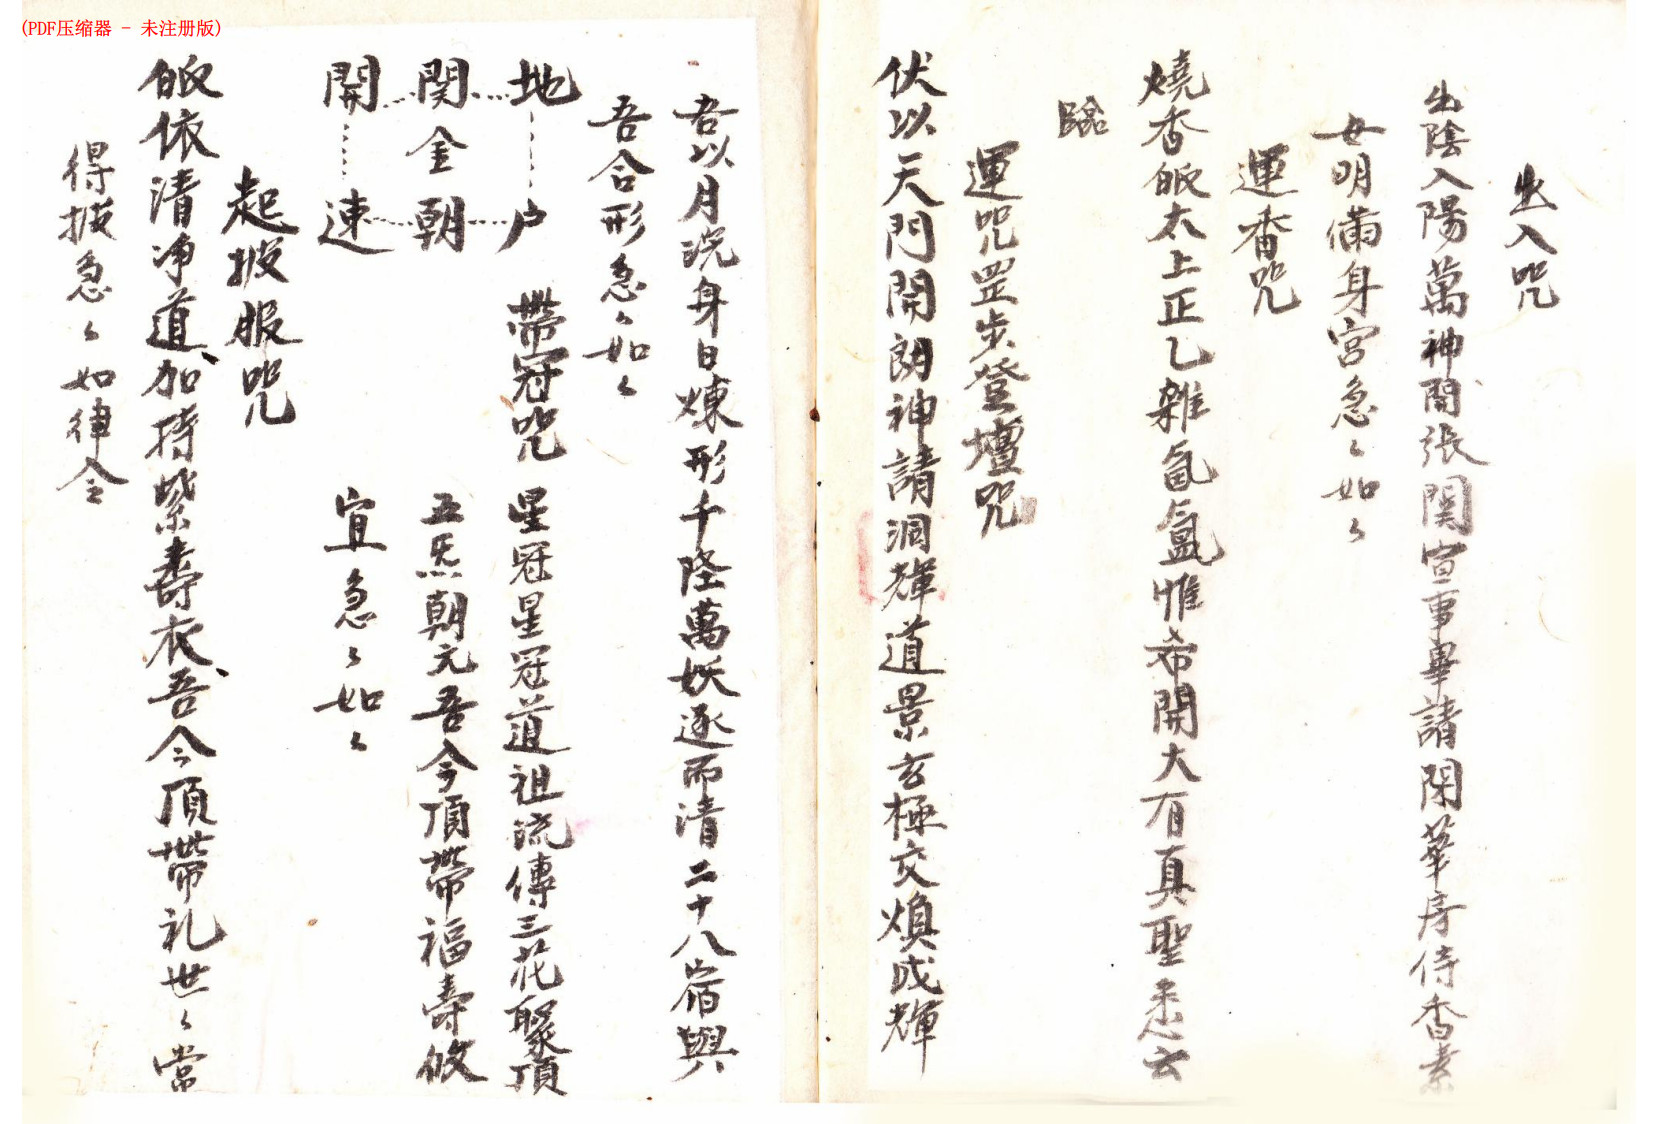 (PDF压缩器 - 未注册版)
出入咒
出陰入陽萬神開張関宣事畢請閉華房侍香素
女明備身宮急〻如〻
運香咒
燒香皈太上正乙雜氤氳惟希開大有真聖悉云
臨
運咒罡步登壇咒
伏以天門開朗神請洞輝道景玄極交煥成輝
吾以月洗身日煉形千陸萬妖逐而清二十八宿與
吾合形急〻如〻
地户
関金朝
開速
帶冠咒
星冠星冠道祖流傳三花聚頂
五炁朝元吾今頂帶福壽攸
宜急〻如〻
起披服咒
皈依清净道加持紫壽衣吾今頂帶礼世〻常
得披急〻如律令